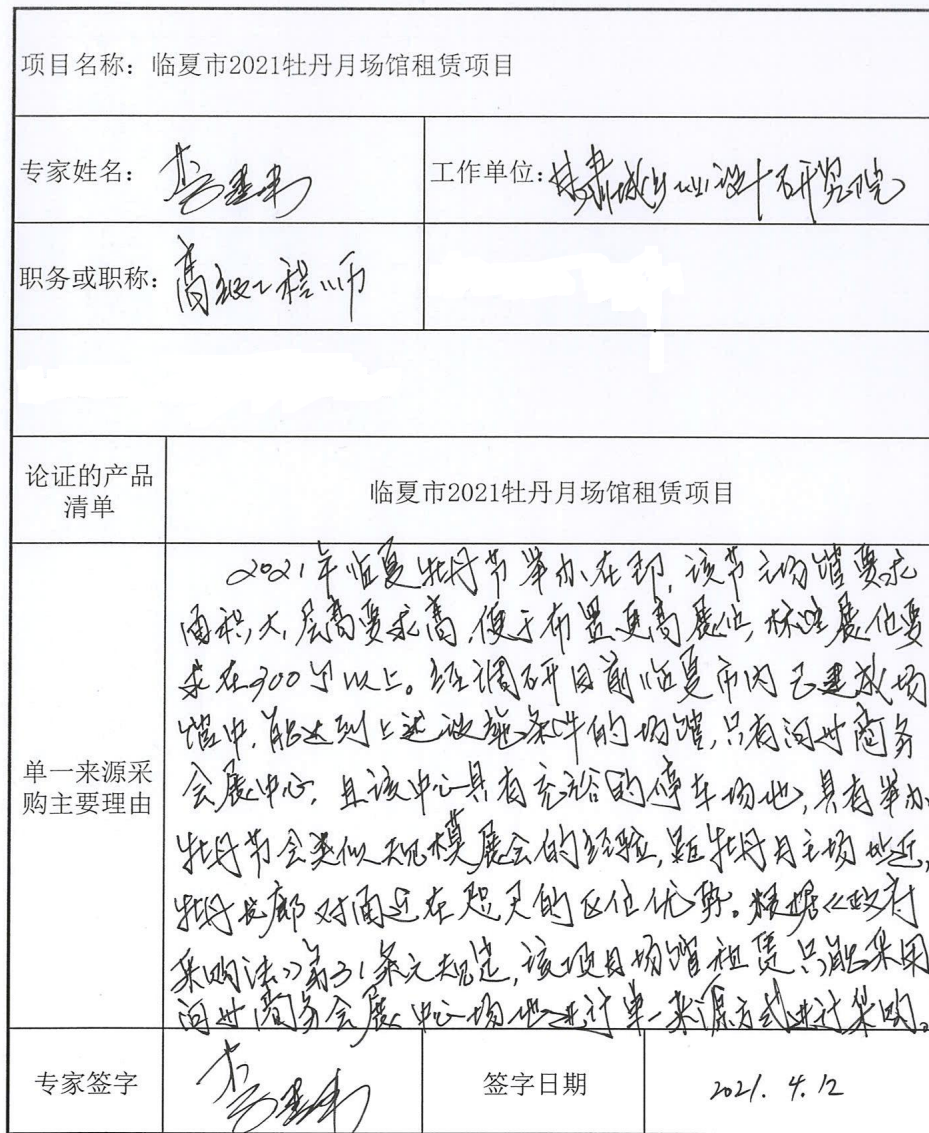 项目名称：临夏市2021牡丹月场馆租赁项目
专家姓名：
工作单位：甘肃城乡工业设计研究院
职务或职称：高级工程师
论证的产品清单
临夏市2021牡丹月场馆租赁项目
单一来源采购主要理由
2021年临夏牡丹节举办在即，该节主场馆要求
面积大，层高要求高，便于布置更高展位，标准展位要
求在300个以上。经调研目前临夏市内已建成场
馆中，能达到上述设施条件的场馆，只有河州商务
会展中心，且该中心具有充裕的停车场地，具有举办
牡丹节会类似规模展会的经验，距牡丹月主场地近，
牡丹长廊对面近在咫尺的区位优势。根据《政府
采购法》第31条之规定，该项目场馆租赁只能采用
河州商务会展中心场地进行单一来源方式进行采购。
专家签字
签字日期
2021.4.12